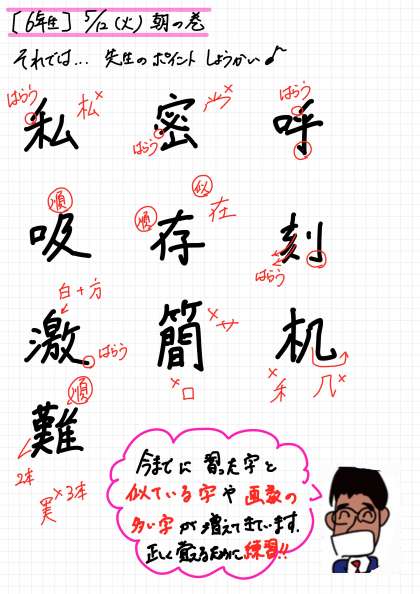 [6年生] 5/12(火) 朝の巻
それでは... 先生のポイントしょうかい♪
はらう 私 私×
密 はらう ⺍×
はらう 呼
順 吸
順 存 似 在
刻 はらう
白+方
激 はらう
簡 ×サ ×口
机 ×禾 几×
順 難
2本 ×3本
今までに 習った字と
似ている字や 画数の
多い字 が 増えてきています.
正しく覚えるために練習!!